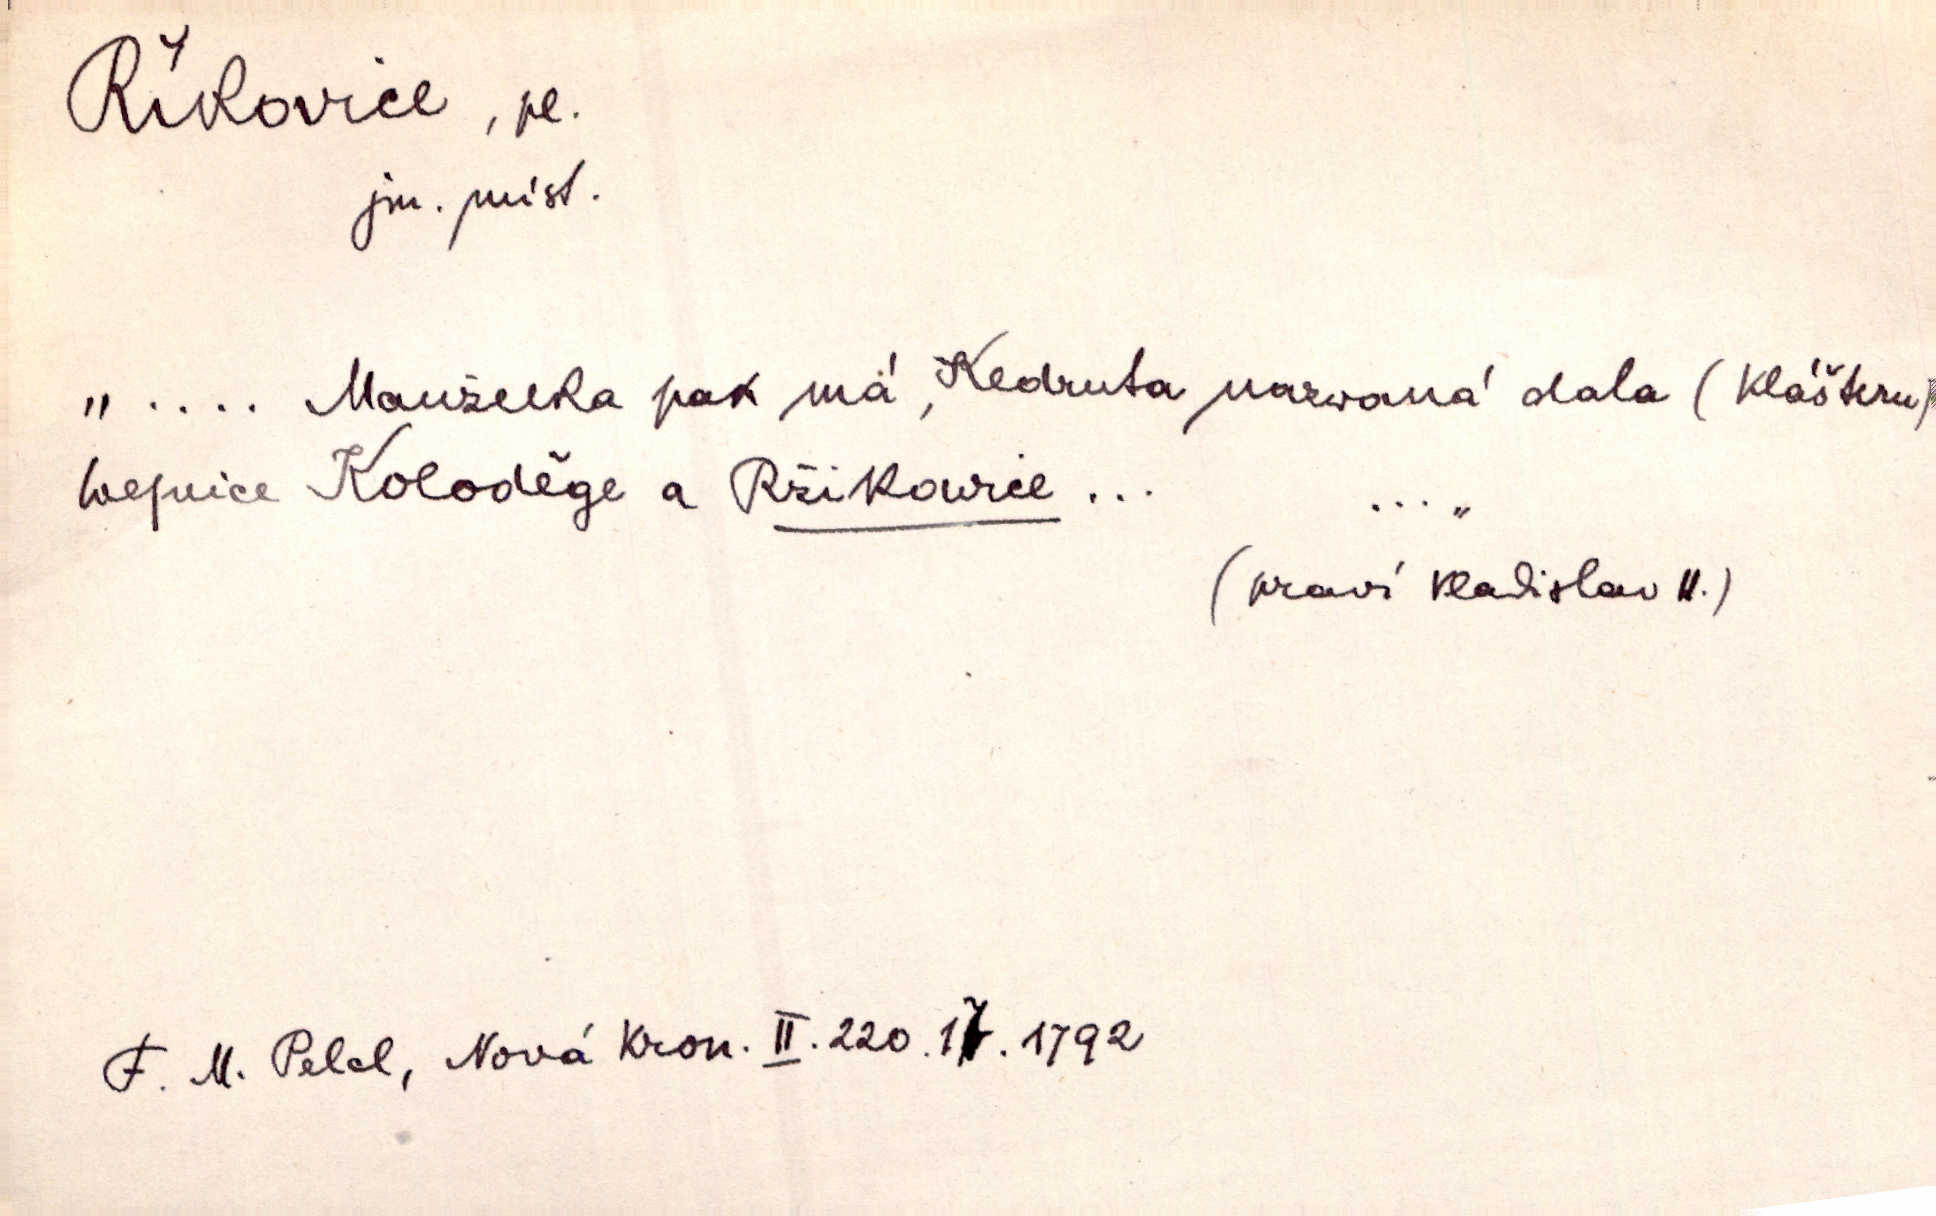 Říkovice, pl.
jm. míst.
„ .... Manželka pak má, Kedruta nazwaná dala (klášteru)
wesnice Koloděge a Ržikowice ... ... "
(praví Vladislav II.)
F. M. Pelcl, Nová Kron. II. 220. 17. 1792